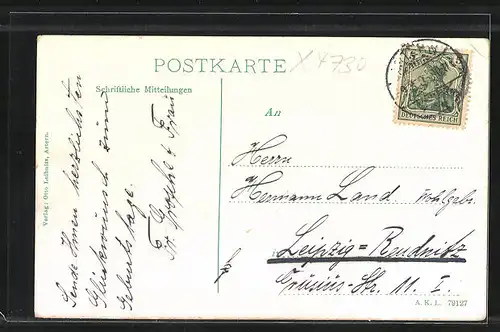 POSTKARTE
X 4730
Schriftliche Mitteilungen
An
DEUTSCHES REICH
Sende Ihnen herzlichsten
Glückwunsch zum
Geburtstage.
Fr. Grosche & Frau
Herrn
Hermann Land. Wohlgeb.
Leipzig=Reudnitz
Crusius-Str. 11. I.
Verlag: Otto Leibnitz, Artern.
A. K. L. 79127